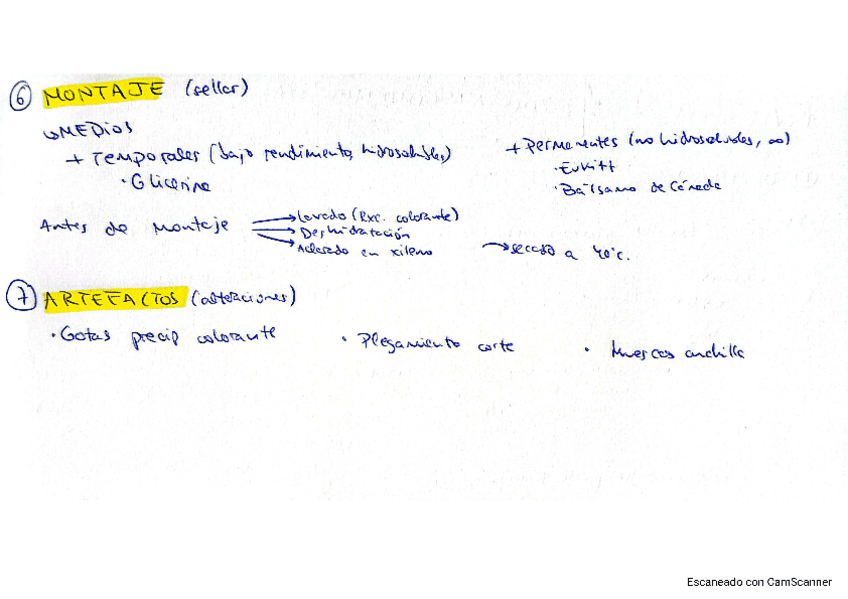 ⑥ MONTAJE (sellar)
↳ MEDIOS
+ Temporales (bajo rendimiento, hidrosolubles)
· Glicerina
+ Permanentes (no hidrosolubles, ∞)
· Eukitt
· Bálsamo de Canadá
Antes de montaje → Lavado (Exc. colorante)
→ Deshidratación
→ Aclarado en xileno
→ secado a 40°c.
⑦ ARTEFACTOS (alteraciones)
· Gotas precip colorante
· Plegamiento corte
· Muescas cuchilla
Escaneado con CamScanner